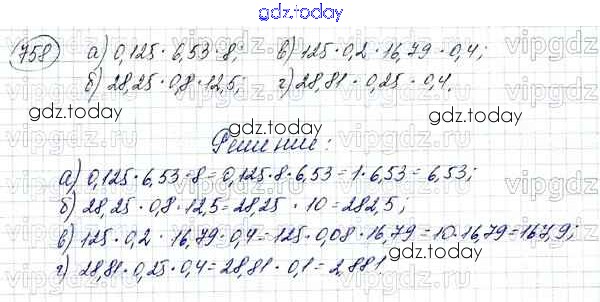 gdz.today
758) а) 0,125 · 6,53 · 8; в) 125 · 0,2 · 16,79 · 0,4;
б) 28,25 · 0,8 · 12,5; г) 28,81 · 0,25 · 0,4.
gdz.today
gdz.today
Решение:
а) 0,125 · 6,53 · 8 = 0,125 · 8 · 6,53 = 1 · 6,53 = 6,53;
б) 28,25 · 0,8 · 12,5 = 28,25 · 10 = 282,5;
в) 125 · 0,2 · 16,79 · 0,4 = 125 · 0,08 · 16,79 = 10 · 16,79 = 167,9;
г) 28,81 · 0,25 · 0,4 = 28,81 · 0,1 = 2,881.
gdz.today
gdz.today